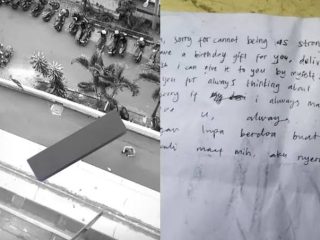 , sorry for cannot being as strong
ave a birthday gift for you, deliv
I can give it to you by myself.
you for always thinking about
orry if i always ma
u, always
lupa berdoa buat
maaf mih, aku nyera